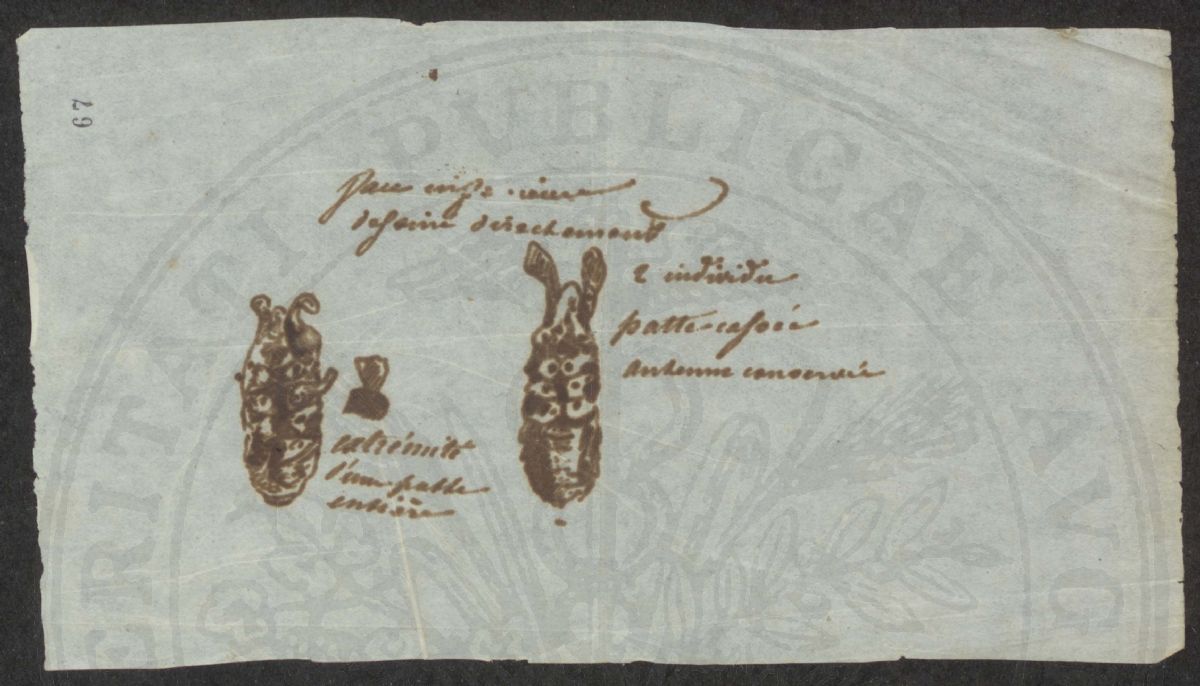 67
face inférieure
dessiné directement
2 individu
patte cassée
antenne conservée
extrémité
d'une patte
entière
RITATI PVBLICAE AVG